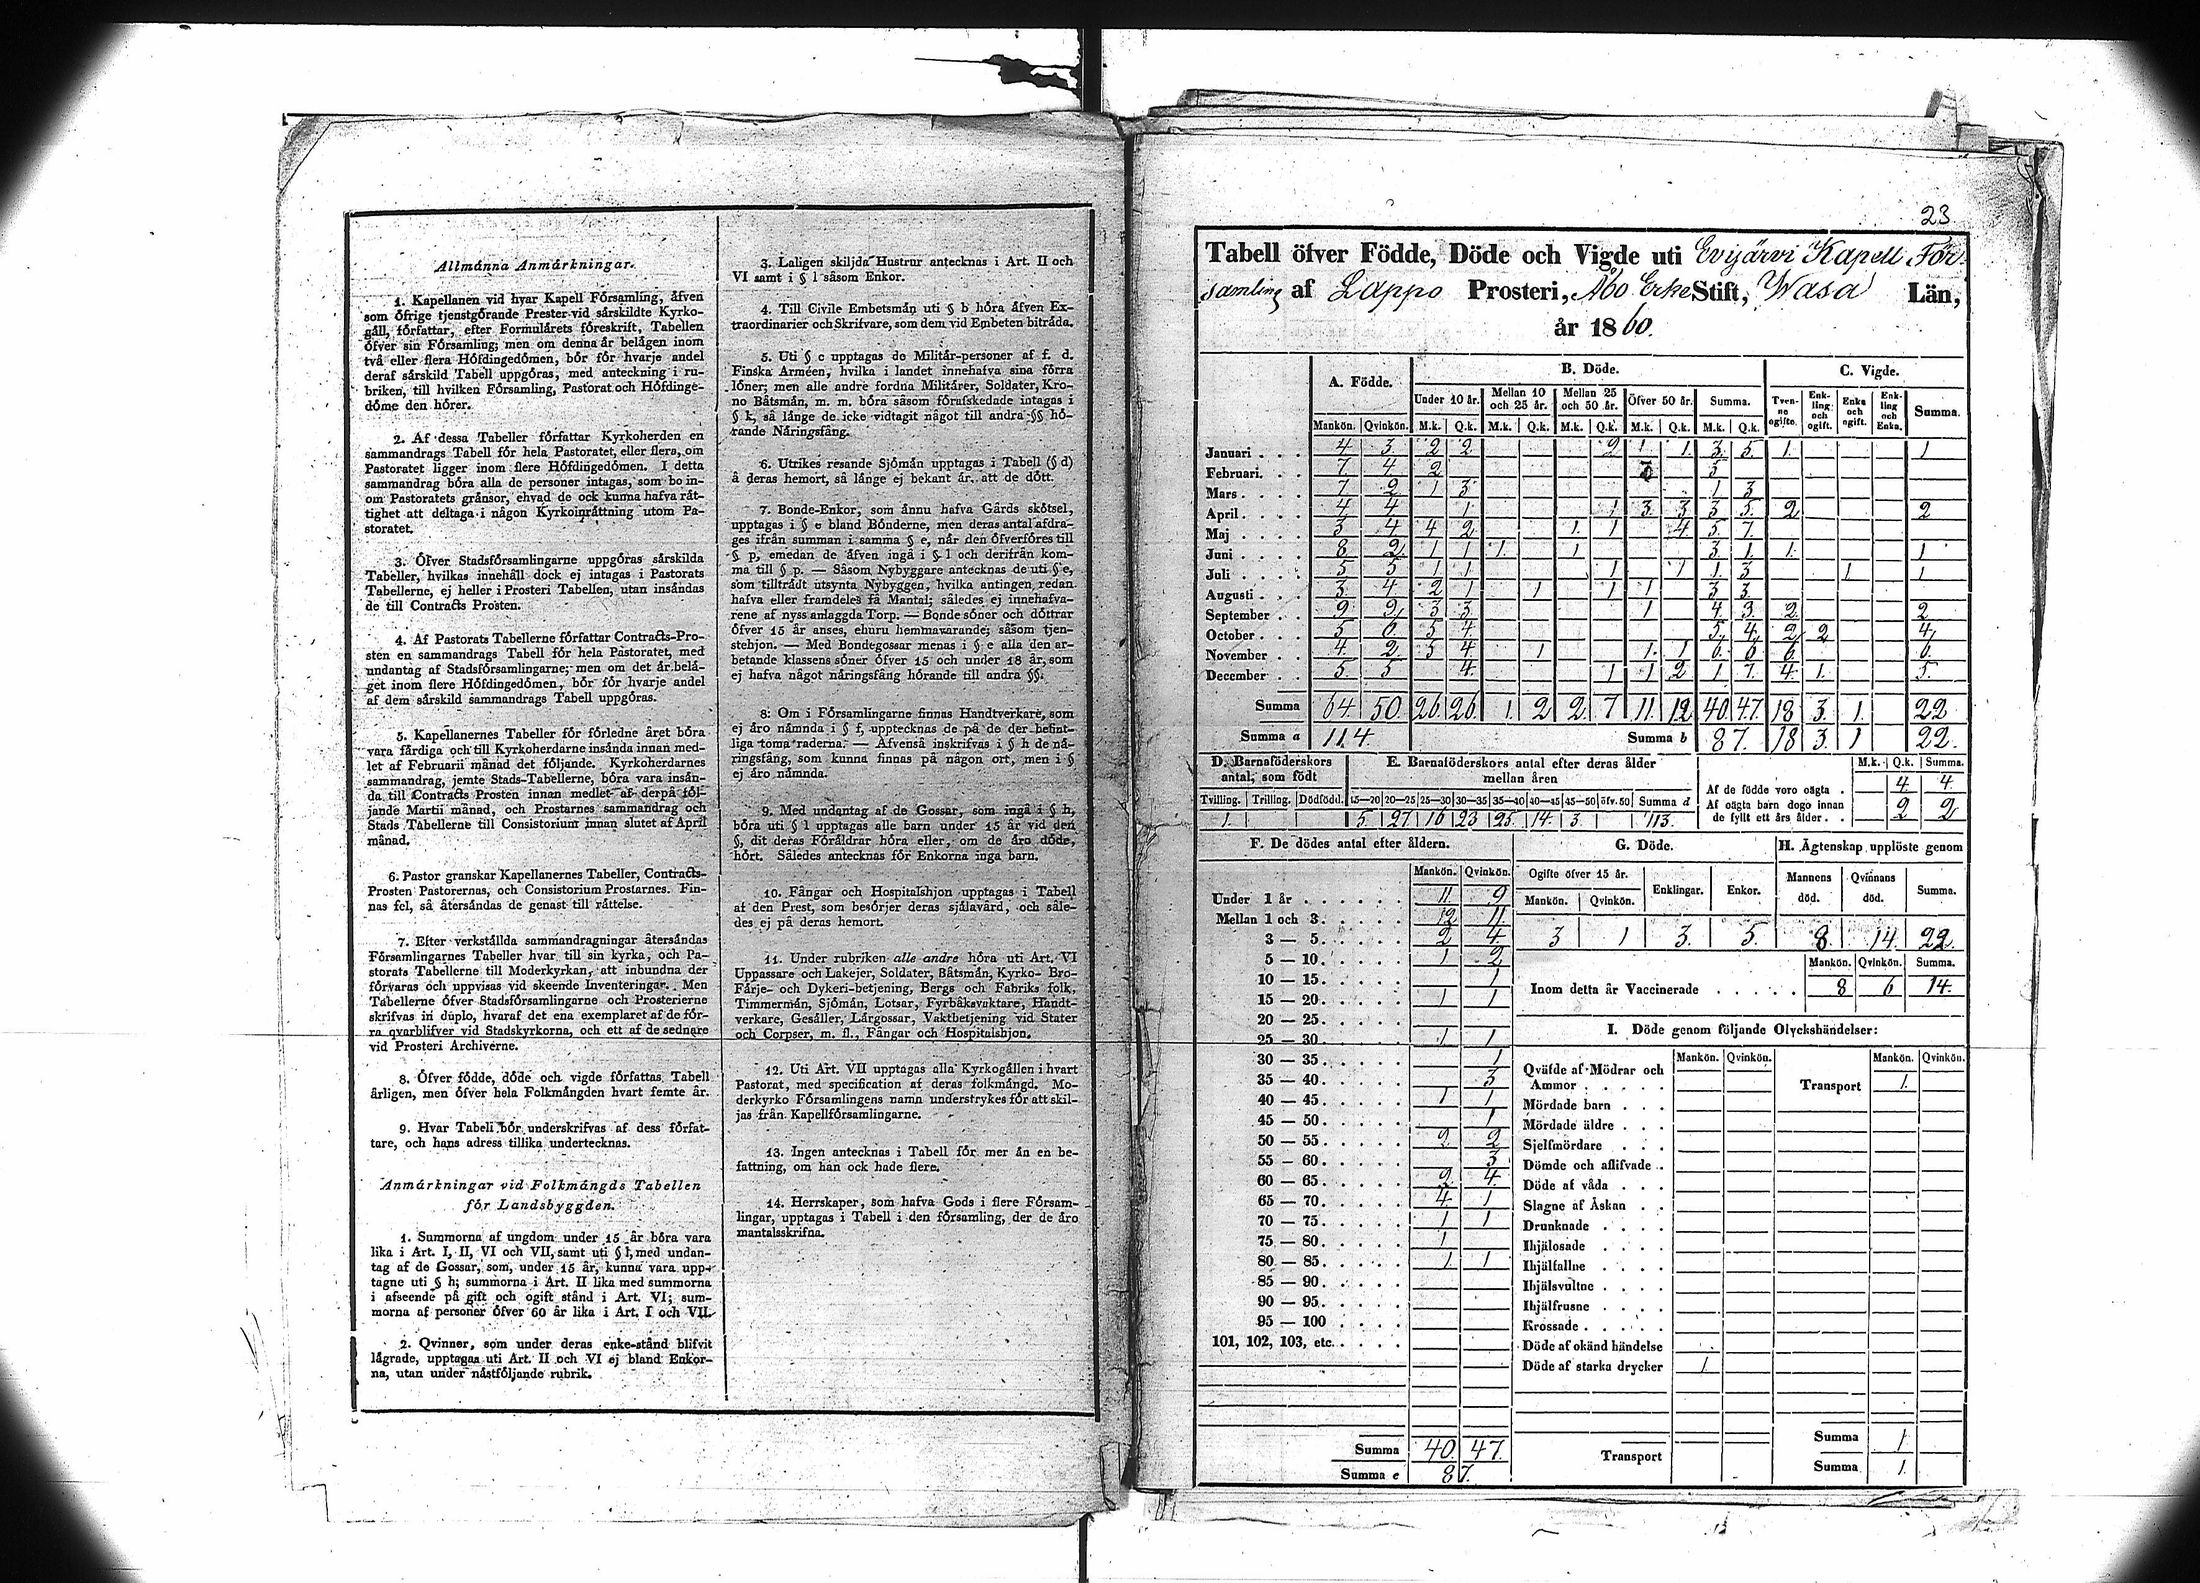 Allmánna Anmárkningar.
1. Kapellanen vid hvar Kapell Fórsamling, åfven
som ófrige tjenstgórande Prester vid sårskildte Kyrko-
gåll, fórfattar, efter Formulårets fóreskrift, Tabellen
ófver sin Fórsamling; men om denna år belågen inom
två eller flera Hófdingedómen, bór fór hvarje andel
deraf sårskild Tabell uppgóras, med anteckning i ru-
briken, till hvilken Fórsamling, Pastorat och Hófdinge-
dóme den hórer.
2. Af dessa Tabeller fórfattar Kyrkoherden en
sammandrags Tabell fór hela Pastoratet, eller flera, om
Pastoratet ligger inom flere Hófdingedómen. I detta
sammandrag bóra alla de personer intagas, som bo in-
om Pastoratets grånsor, ehvad de ock kunna hafva råt-
tighet att deltaga i någon Kyrkoinråttning utom Pa-
storatet.
3. Ófver Stadsfórsamlingarne uppgóras sårskilda
Tabeller, hvilkas innehåll dock ej intages i Pastorats
Tabellerne, ej heller i Prosteri Tabellen, utan insåndas
de till Contracts Prosten.
4. Af Pastorats Tabellerne fórfattar Contracts-Pro-
sten en sammandrags Tabell fór hela Pastoratet, med
undantag af Stadsfórsamlingarne; men om det år belå-
get inom flere Hófdingedómen, bór fór hvarje andel
af dem sårskild sammandrags Tabell uppgóras.
5. Kapellanernes Tabeller fór fórledne året bóra
vara fårdiga och till Kyrkoherdarne insånda innan med-
let af Februarii månad det fóljande. Kyrkoherdarnes
sammandrag, jemte Stads-Tabellerne, bóra vara insån-
da till Contracts Prosten innan medlet af derpå fól-
jande Martii månad, och Prostarnes sammandrag och
Stads Tabellerne till Consistorium innan slutet af April
månad.
6. Pastor granskar Kapellanernes Tabeller, Contracts-
Prosten Pastorernas, och Consistorium Prostarnes. Fin-
nas fel, så återsåndas de genast till råttelse.
7. Efter verkstållda sammandragningar återsåndas
Fórsamlingarnes Tabeller hvar till sin kyrka, och Pa-
storats Tabellerne till Moderkyrkan, att inbundna der
fórvaras och uppvisas vid skeende Inventeringar. Men
Tabellerne ófver Stadsfórsamlingarne och Prosterierne
skrifvas in duplo, hvaraf det ena exemplaret af de fór-
ra qvarblifver vid Stadskyrkorna, och ett af de sednare
vid Prosteri Archiverne.
8. Ófver fódde, dóde och vigde fórfattas Tabell
årligen, men ófver hela Folkmångden hvart femte år.
9. Hvar Tabell bór underskrifvas af dess fórfat-
tare, och hans adress tillika undertecknas.
Anmárkningar vid Folkmángds Tabellen
fór Landsbyggden.
1. Summorna af ungdom under 15 år bóra vara
lika i Art. I, II, VI och VII, samt uti § l, med undan-
tag af de Gossar, som, under 15 år, kunna vara upp-
tagne uti § h; summorna i Art. II lika med summorna
i afseende på gift och ogift stånd i Art. VI; sum-
morna af personer ófver 60 år lika i Art. I och VII.
2. Qvinner, som under deras enke-stånd blifvit
lågrade, upptagas uti Art. II och VI ej bland Enkor-
na, utan under nåstfóljande rubrik.
3. Laligen skiljda Hustrur antecknas i Art. II och
VI samt i § l såsom Enkor.
4. Till Civile Embetsmån uti § b hóra åfven Ex-
traordinarier och Skrifvare, som dem vid Embeten bitråda.
5. Uti § c upptagas de Militår-personer af f. d.
Finska Arméen, hvilka i landet innehafva sina fórra
lóner; men alle andre fordna Militårer, Soldater, Kro-
no Båtsmån, m. m. bóra såsom fórafskedade intagas i
§ k, så långe de icke vidtagit något till andra §§ hó-
rande Nåringsfång.
6. Utrikes resande Sjómån upptagas i Tabell (§ d)
å deras hemort, så långe ej bekant år, att de dótt.
7. Bonde-Enkor, som ånnu hafva Gårds skótsel,
upptagas i § e bland Bónderne, men deras antal afdra-
ges ifrån summan i samma § e, når den ófverfóres till
§ p, emedan de åfven ingå i § l och derifrån kom-
ma till § p. — Såsom Nybyggare antecknas de uti § e,
som tilltrådt utsynta Nybyggen, hvilka antingen redan
hafva eller framdeles få Mantal; således ej innehafva-
rene af nyss anlaggda Torp. — Bonde sóner och dóttrar
ófver 15 år anses, ehuru hemmavarande, såsom tjen-
stehjon. — Med Bondegossar menas i § e alla den ar-
betande klassens sóner ófver 15 och under 18 år, som
ej hafva något nåringsfång hórande till andra §§.
8. Om i Fórsamlingarne finnas Handtverkare, som
ej åro nåmnda i § f, upptecknas de på de der befint-
liga toma raderna. — Åfvenså inskrifvas i § h de nå-
ringsfång, som kunna finnas på någon ort, men i §
ej åro nåmnda.
9. Med undantag af de Gossar, som ingå i § h,
bóra uti § l upptagas alle barn under 15 år vid den
§, dit deras Fóråldrar hóra eller, om de åro dóde,
hórt. Således antecknas fór Enkorna inga barn.
10. Fångar och Hospitalshjon upptagas i Tabell
af den Prest, som besórjer deras sjålavård, och såle-
des ej på deras hemort.
11. Under rubriken alle andre hóra uti Art. VI
Uppassare och Lakejer, Soldater, Båtsmån, Kyrko- Bro-
Fårje- och Dykeri-betjening, Bergs och Fabriks folk,
Timmermån, Sjómån, Lotsar, Fyrbåksvaktare, Handt-
verkare, Gesåller, Lårgossar, Vaktbetjening vid Stater
och Corpser, m. fl., Fångar och Hospitalshjon.
12. Uti Art. VII upptagas alla Kyrkogållen i hvart
Pastorat, med specification af deras folkmångd. Mo-
derkyrko Fórsamlingens namn understrykes fór att skil-
jas från Kapellfórsamlingarne.
13. Ingen antecknas i Tabell fór mer ån en be-
fattning, om han ock hade flere.
14. Herrskaper, som hafva Gods i flere Fórsam-
lingar, upptagas i Tabell i den fórsamling, der de åro
mantalsskrifna.
23.
Tabell öfver Födde, Döde och Vigde uti Evijärvi Kapell För-
samling af Lappo Prosteri, Åbo Erke Stift, Wasa Län,
år 1860.
A. Födde. B. Döde. C. Vigde.
Under 10 år. Mellan 10 och 25 år. Mellan 25 och 50 år. Öfver 50 år. Summa. Tven-ne ogifte. Enk-ling och ogift. Enka och ogift. Enk-ling och Enka. Summa.
Mankön. Qvinkön. M.k. Q.k. M.k. Q.k. M.k. Q.k. M.k. Q.k. M.k. Q.k.
Januari 4 3 2 2 2 1 1 3 5 1 1
Februari 7 4 2 3 5
Mars 7 2 1 3 1 3
April 4 4 1 1 3 3 3 5 2 2
Maj 3 4 4 2 1 1 4 5 7
Juni 8 2 1 1 1 1 3 1 1 1
Juli 5 5 1 1 1 1 1 3 1 1
Augusti 3 4 2 1 1 1 1 1 3 3
September 9 9 3 3 1 4 3 2 2
October 5 6 5 4 5 4 2 2 4
November 4 2 5 4 1 1 1 6 6 6 6
December 5 5 4 1 1 2 1 7 4 1 5
Summa 64 50 26 26 1 2 2 7 11 12 40 47 18 3 1 22
Summa a 114 Summa b 87. 18 3 1 22.
D. Barnaföderskors antal, som födt
Tvilling. Trilling. Dödfödd.
1.
E. Barnaföderskors antal efter deras ålder mellan åren
15—20 20—25 25—30 30—35 35—40 40—45 45—50 öfv. 50 Summa d
5 27 16 23 25 14 3 113.
M.k. Q.k. Summa.
Af de födde voro oägta . 4 4
Af oägta barn dogo innan
de fyllt ett års ålder . . 2 2
F. De dödes antal efter åldern.
Mankön. Qvinkön.
Under 1 år 11 9
Mellan 1 och 3. 12 11
3 — 5. 2 4
5 — 10. 1 2
10 — 15. 1
15 — 20. 1 1
20 — 25.
25 — 30 1 1
30 — 35. 1
35 — 40. 3
40 — 45. 1 1
45 — 50. 1
50 — 55. 2 2
55 — 60. 3
60 — 65. 2 4
65 — 70. 4 1
70 — 75. 1 1
75 — 80. 1
80 — 85. 1 1
85 — 90.
90 — 95.
95 — 100
101, 102, 103, etc.
Summa 40. 47.
Summa e 87.
G. Döde.
Ogifte öfver 15 år. Enklingar. Enkor.
Mankön. Qvinkön.
3 1 3. 5.
H. Ägtenskap upplöste genom
Mannens död. Qvinnans död. Summa.
8. 14. 22.
Mankön. Qvinkön. Summa.
Inom detta år Vaccinerade 8 6 14.
I. Döde genom följande Olyckshändelser:
Mankön. Qvinkön. Mankön. Qvinkön.
Qväfde af Mödrar och
Ammor
Mördade barn
Mördade äldre
Sjelfmördare
Dömde och aflifvade
Döde af våda
Slagne af Åskan
Drunknade
Ihjälosade
Ihjälfallne
Ihjälsvultne
Ihjälfrusne
Krossade
Döde af okänd händelse
Döde af starka drycker 1.
Transport
Transport 1.
Summa 1.
Summa 1.